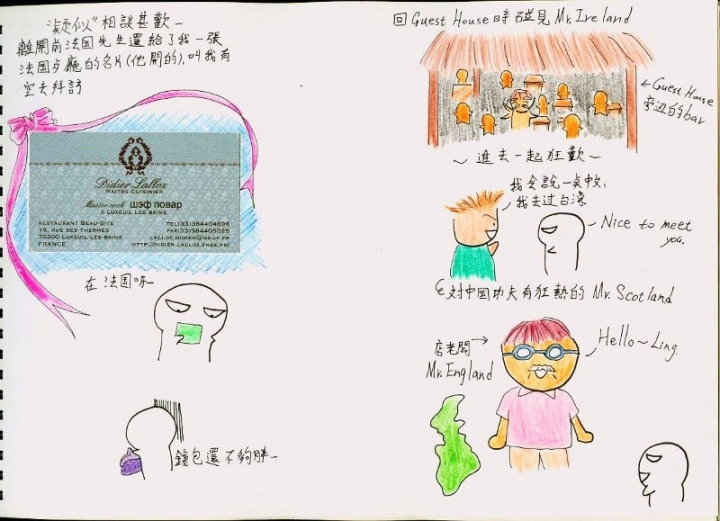 “疑似”相談甚歡～
離開前法国先生還給了我一張
法国歺廳的名片(他開的),叫我有
空去拜訪
Didier Lalloz
MAITRE CUISINIER
Master cook шэф повар
A LUXEUIL LES BAINS
RESTAURANT BEAU-SITE
18, RUE DES THERMES
70300 LUXEUIL LES BAINS
FRANCE
LALLOZ.DIDIER@NEUF.FR
HTTP://DIDIER.LALLOZ.FREE.FR/
在法国呀~
錢包還不夠胖~
回Guest House時碰見Mr.Ireland
←Guest House
旁边的bar
~進去一起狂歡~
我会說一点中文,
我去过台湾
Nice to meet
you.
对中国功夫有狂熱的 Mr.Scotland
店老闆→
Mr.England
Hello~Ling.